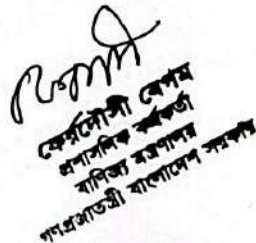 ফেরদৌসী বেগম
প্রশাসনিক কর্মকর্তা
বাণিজ্য মন্ত্রণালয়
গণপ্রজাতন্ত্রী বাংলাদেশ সরকার